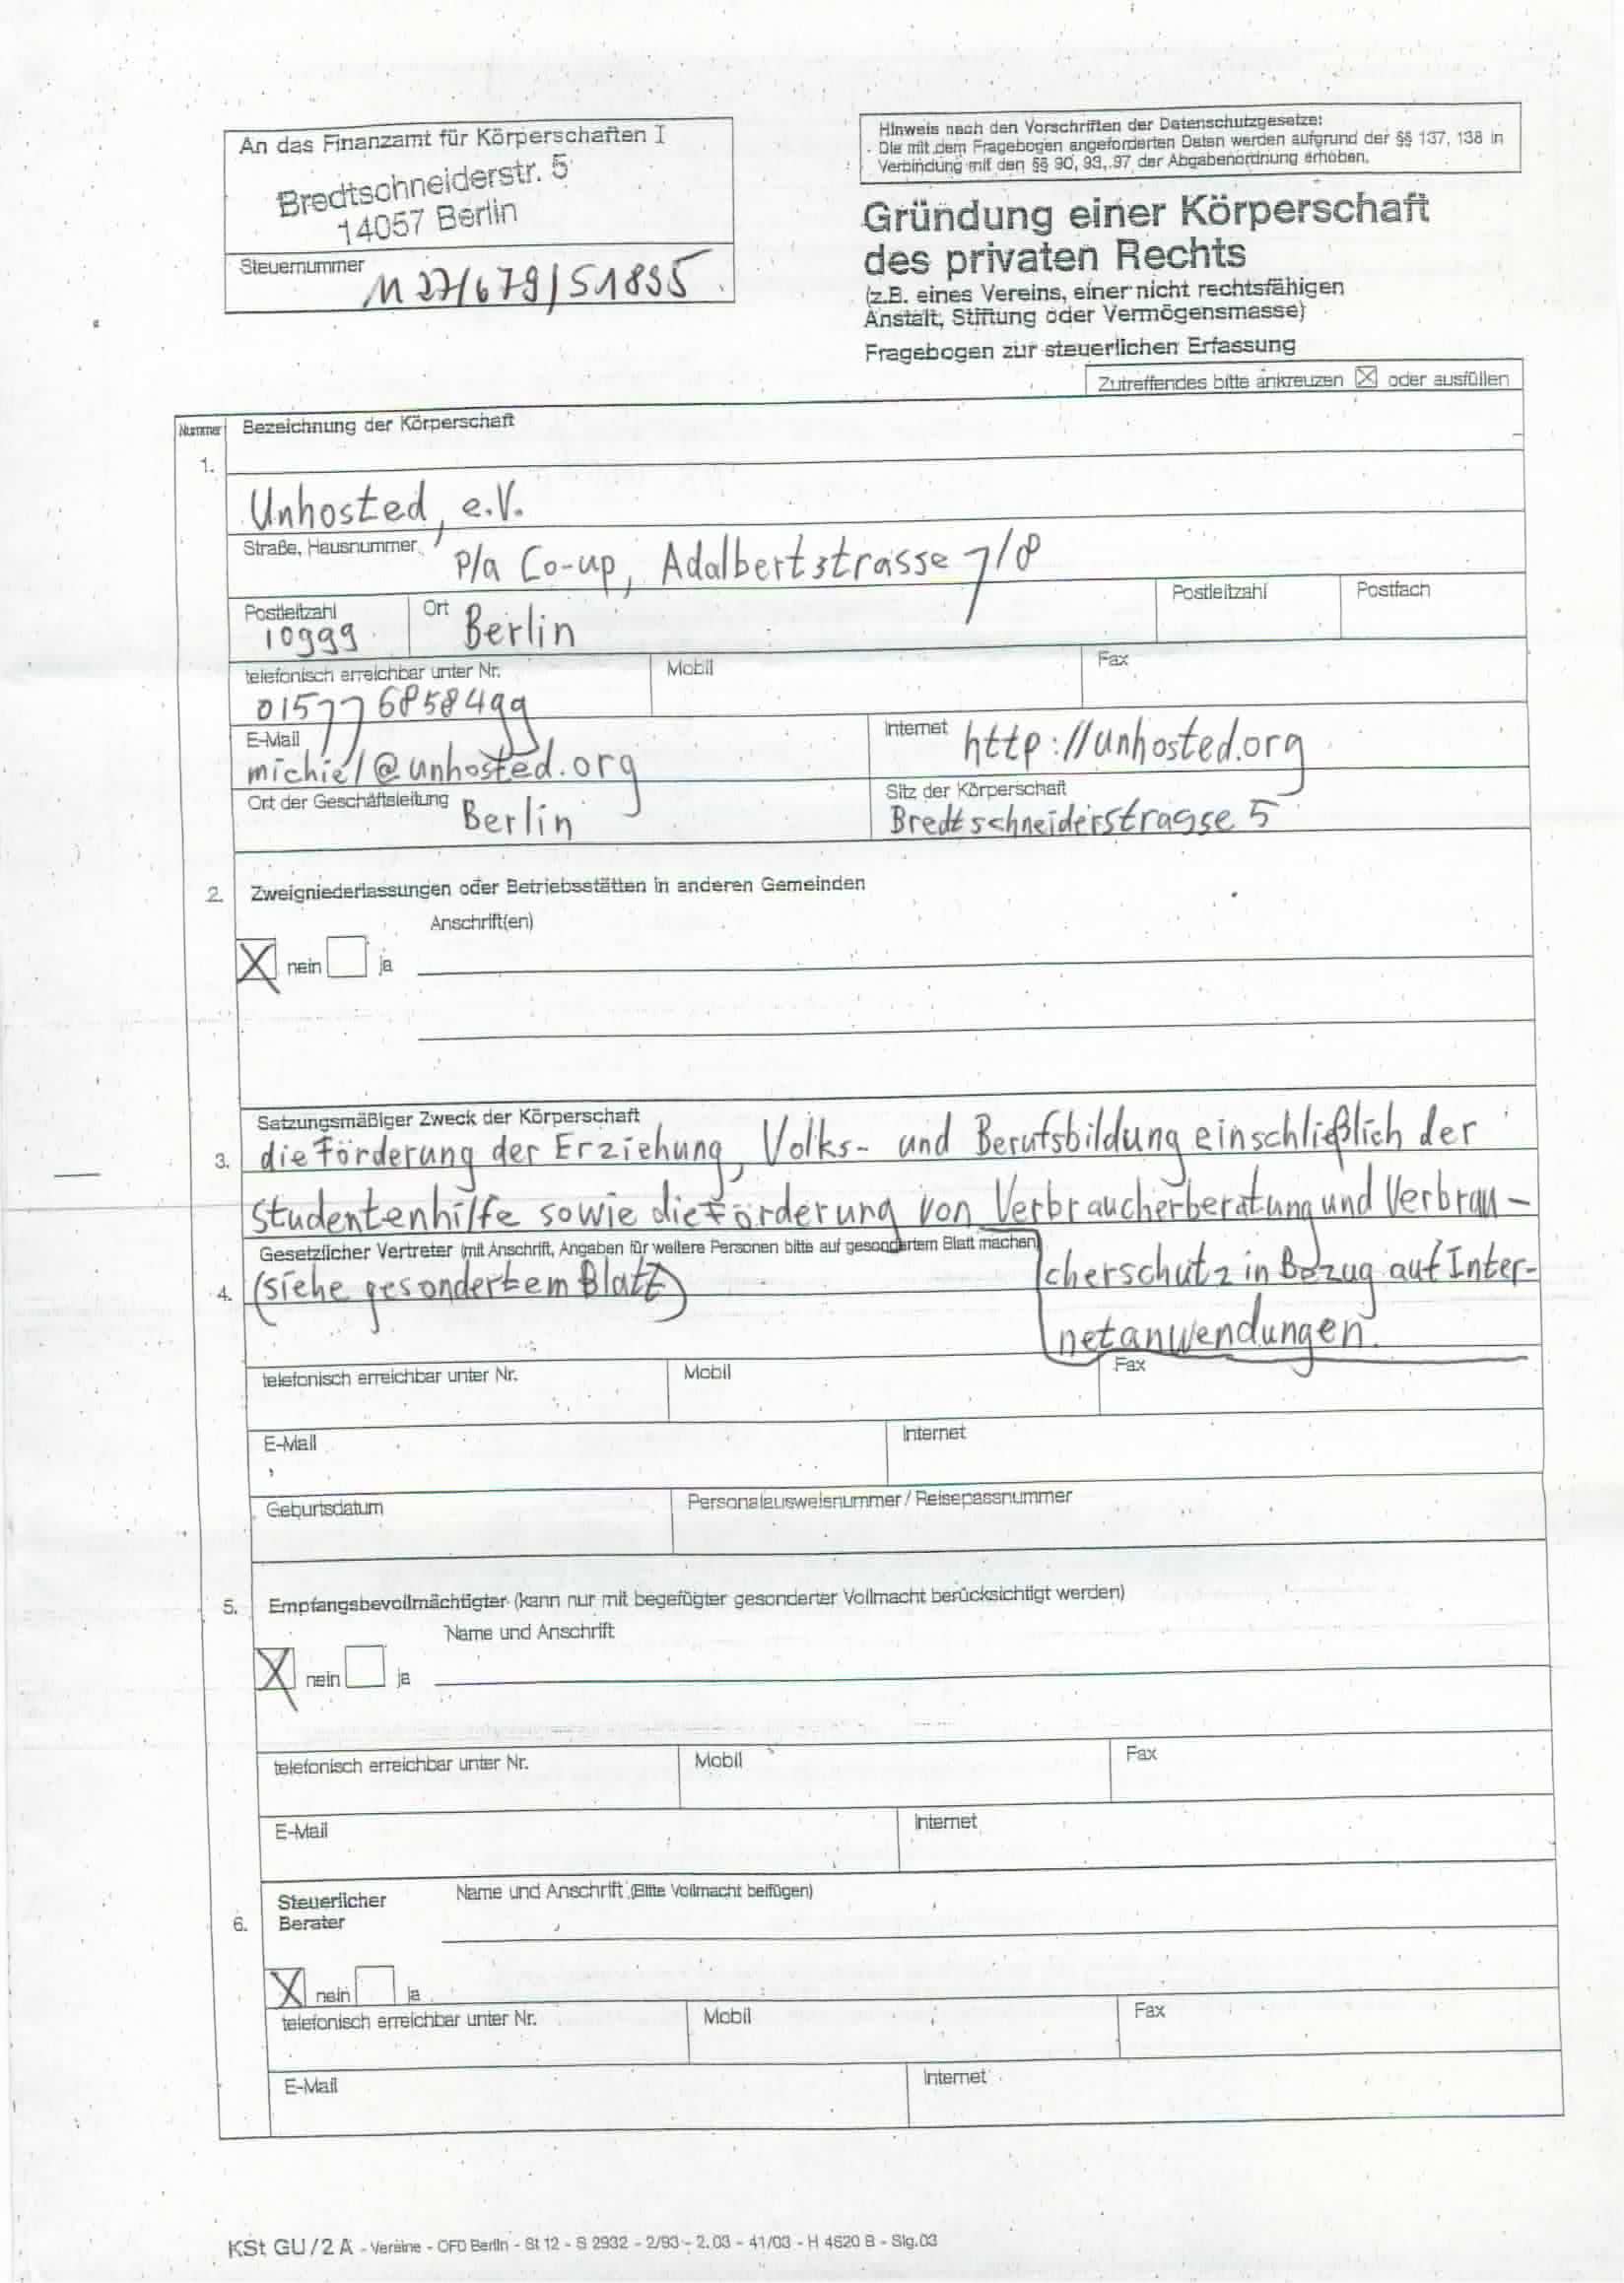 An das Finanzamt für Körperschaften I
Bredtschneiderstr. 5
14057 Berlin
Steuernummer
27/679/51835
Hinweis nach den Vorschriften der Datenschutzgesetze:
Die mit dem Fragebogen angeforderten Daten werden aufgrund der §§ 137, 138 in
Verbindung mit den §§ 90, 93, 97 der Abgabenordnung erhoben.
Gründung einer Körperschaft
des privaten Rechts
(z.B. eines Vereins, einer nicht rechtsfähigen
Anstalt, Stiftung oder Vermögensmasse)
Fragebogen zur steuerlichen Erfassung
Zutreffendes bitte ankreuzen ☒ oder ausfüllen
Nummer
Bezeichnung der Körperschaft
1.
Unhosted, e.V.
Straße, Hausnummer
p/a Co-up, Adalbertstrasse 7/8
Postleitzahl Ort Postleitzahl Postfach
10999 Berlin
telefonisch erreichbar unter Nr. Mobil Fax
015776858499
E-Mail Internet
michiel@unhosted.org http://unhosted.org
Ort der Geschäftsleitung Sitz der Körperschaft
Berlin Bredtschneiderstrasse 5
2. Zweigniederlassungen oder Betriebsstätten in anderen Gemeinden
Anschrift(en)
☒ nein ☐ ja
Satzungsmäßiger Zweck der Körperschaft
3. die Förderung der Erziehung, Volks- und Berufsbildung einschließlich der
Studentenhilfe sowie die Förderung von Verbraucherberatung und Verbrau-
cherschutz in Bezug auf Inter-
netanwendungen.
Gesetzlicher Vertreter (mit Anschrift, Angaben für weitere Personen bitte auf gesondertem Blatt machen)
4. (siehe gesondertem Blatt)
telefonisch erreichbar unter Nr. Mobil Fax
E-Mail Internet
Geburtsdatum Personalausweisnummer / Reisepassnummer
5. Empfangsbevollmächtigter (kann nur mit begefügter gesonderter Vollmacht berücksichtigt werden)
Name und Anschrift
☒ nein ☐ ja
telefonisch erreichbar unter Nr. Mobil Fax
E-Mail Internet
Steuerlicher Name und Anschrift (Bitte Vollmacht beifügen)
6. Berater
☒ nein ☐ ja
telefonisch erreichbar unter Nr. Mobil Fax
E-Mail Internet
KSt GU/2 A - Vereine - OFD Berlin - St 12 - S 2932 - 2/93 - 2.03 - 41/03 - H 4620 B - Slg.03